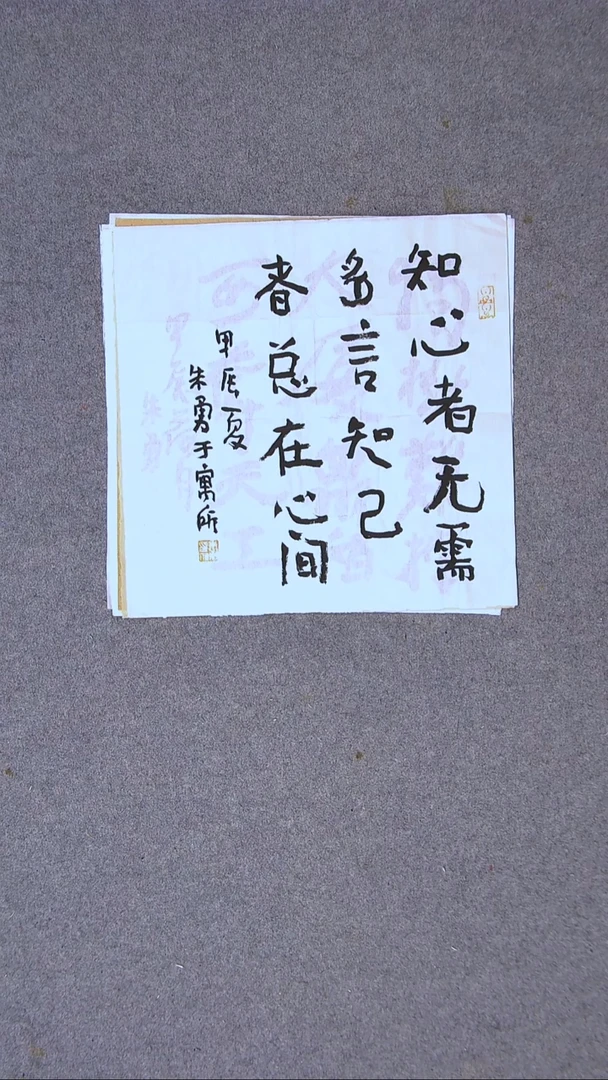 知心者无需
多言知己
者总在心间
甲辰夏
朱勇于寓所